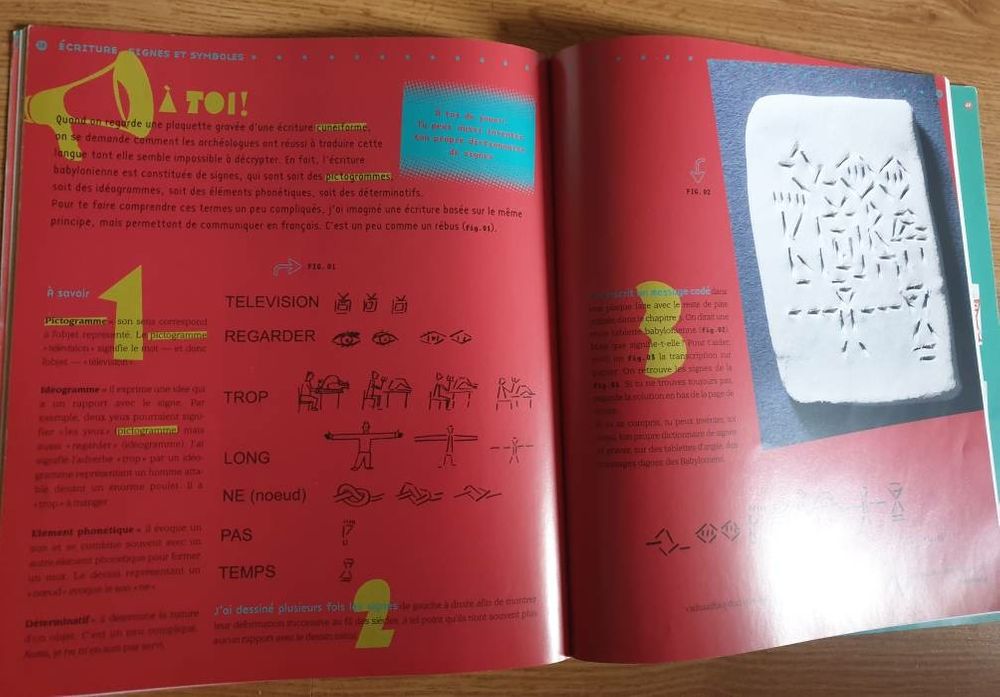 ÉCRITURE, SIGNES ET SYMBOLES
À TOI!
Quand on regarde une plaquette gravée d'une écriture cunéiforme,
on se demande comment les archéologues ont réussi à traduire cette
langue tant elle semble impossible à décrypter. En fait, l'écriture
babylonienne est constituée de signes, qui sont soit des pictogrammes,
soit des idéogrammes, soit des éléments phonétiques, soit des déterminatifs.
Pour te faire comprendre ces termes un peu compliqués, j'ai imaginé une écriture basée sur le même
principe, mais permettant de communiquer en français. C'est un peu comme un rébus (fig.01).
À toi de jouer!
Tu peux aussi inventer
ton propre dictionnaire
de signes
FIG.01
1
À savoir
Pictogramme = son sens correspond
à l'objet représenté. Le pictogramme
«télévision» signifie le mot — et donc
l'objet — «télévision».
Idéogramme = il exprime une idée qui
a un rapport avec le signe. Par
exemple, deux yeux pourraient signi-
fier «les yeux» (pictogramme), mais
aussi «regarder» (idéogramme). J'ai
signifié l'adverbe «trop» par un idéo-
gramme représentant un homme atta-
blé devant un énorme poulet. Il a
«trop» à manger.
Elément phonétique = il évoque un
son et se combine souvent avec un
autre élément phonétique pour former
un mot. Le dessin représentant un
«nœud» évoque le son «ne».
Déterminatif = il détermine la nature
d'un objet. C'est un peu compliqué.
Aussi, je ne m'en suis pas servi.
TELEVISION
REGARDER
TROP
LONG
NE (noeud)
PAS
TEMPS
2
J'ai dessiné plusieurs fois les signes de gauche à droite afin de montrer
leur déformation successive au fil des siècles, à tel point qu'ils n'ont souvent plus
aucun rapport avec le dessin initial.
FIG.02
3
inscrit un message codé dans
une plaque faite avec le reste de pas
utilisée dans le chapitre. On dirait une
tablette babylonienne (fig.02).
que signifie-t-elle? Pour t'aider,
fig.03 la transcription sur
On retrouve les signes de la
fig.01. Si tu ne trouves toujours pas,
regarde la solution en bas de la page de
as compris, tu peux inventer, toi
aussi, ton propre dictionnaire de signes
et graver, sur des tablettes d'argile, des
messages dignes des Babyloniens.